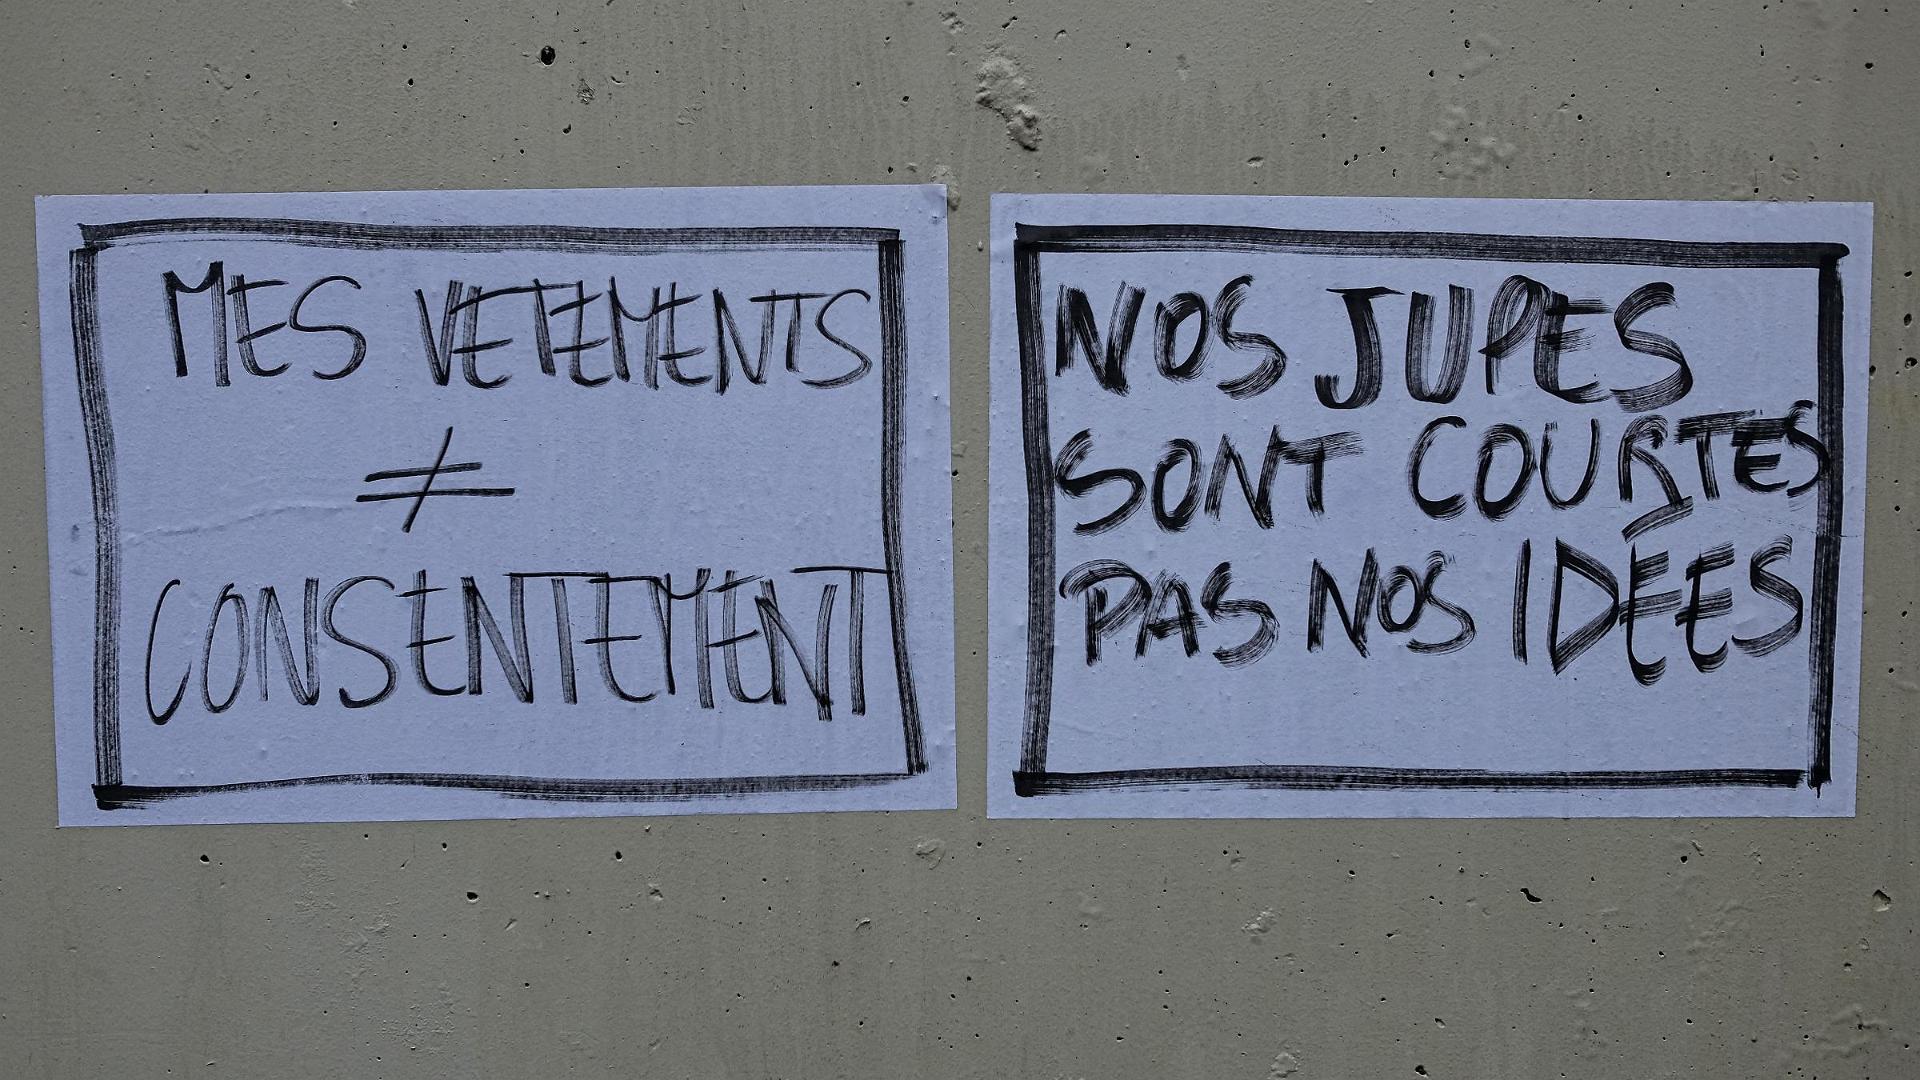 MES VETEMENTS
≠
CONSENTEMENT
NOS JUPES
SONT COURTES
PAS NOS IDÉES